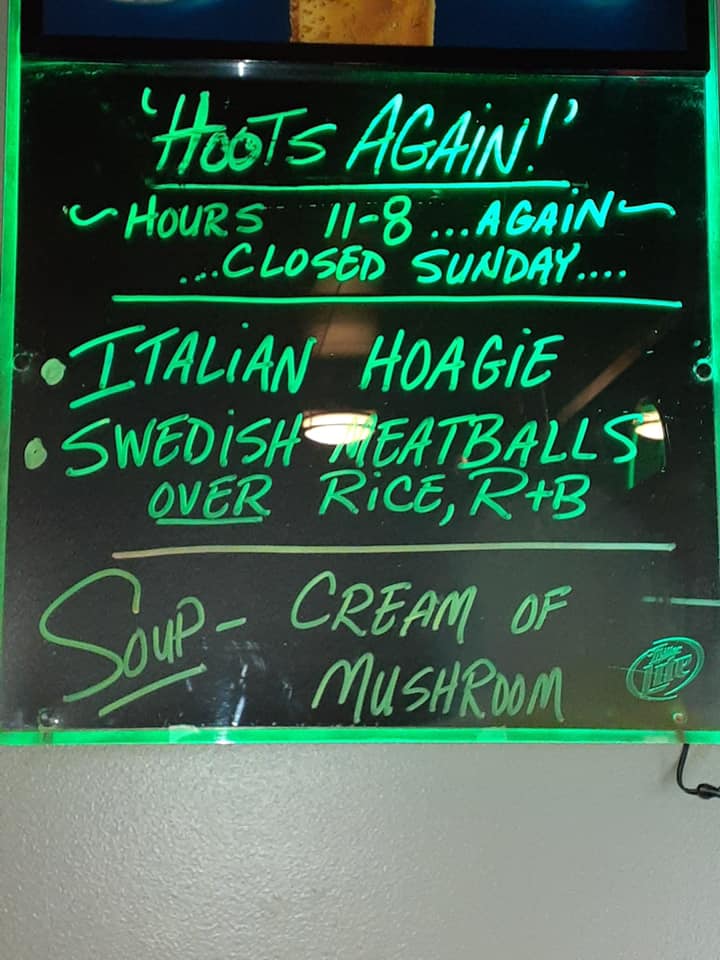 'HOOTS AGAIN!'
~HOURS 11-8 ...AGAIN~
...CLOSED SUNDAY....
• ITALIAN HOAGIE
• SWEDISH MEATBALLS
OVER RICE, R+B
SOUP- CREAM OF
MUSHROOM
Miller
Lite